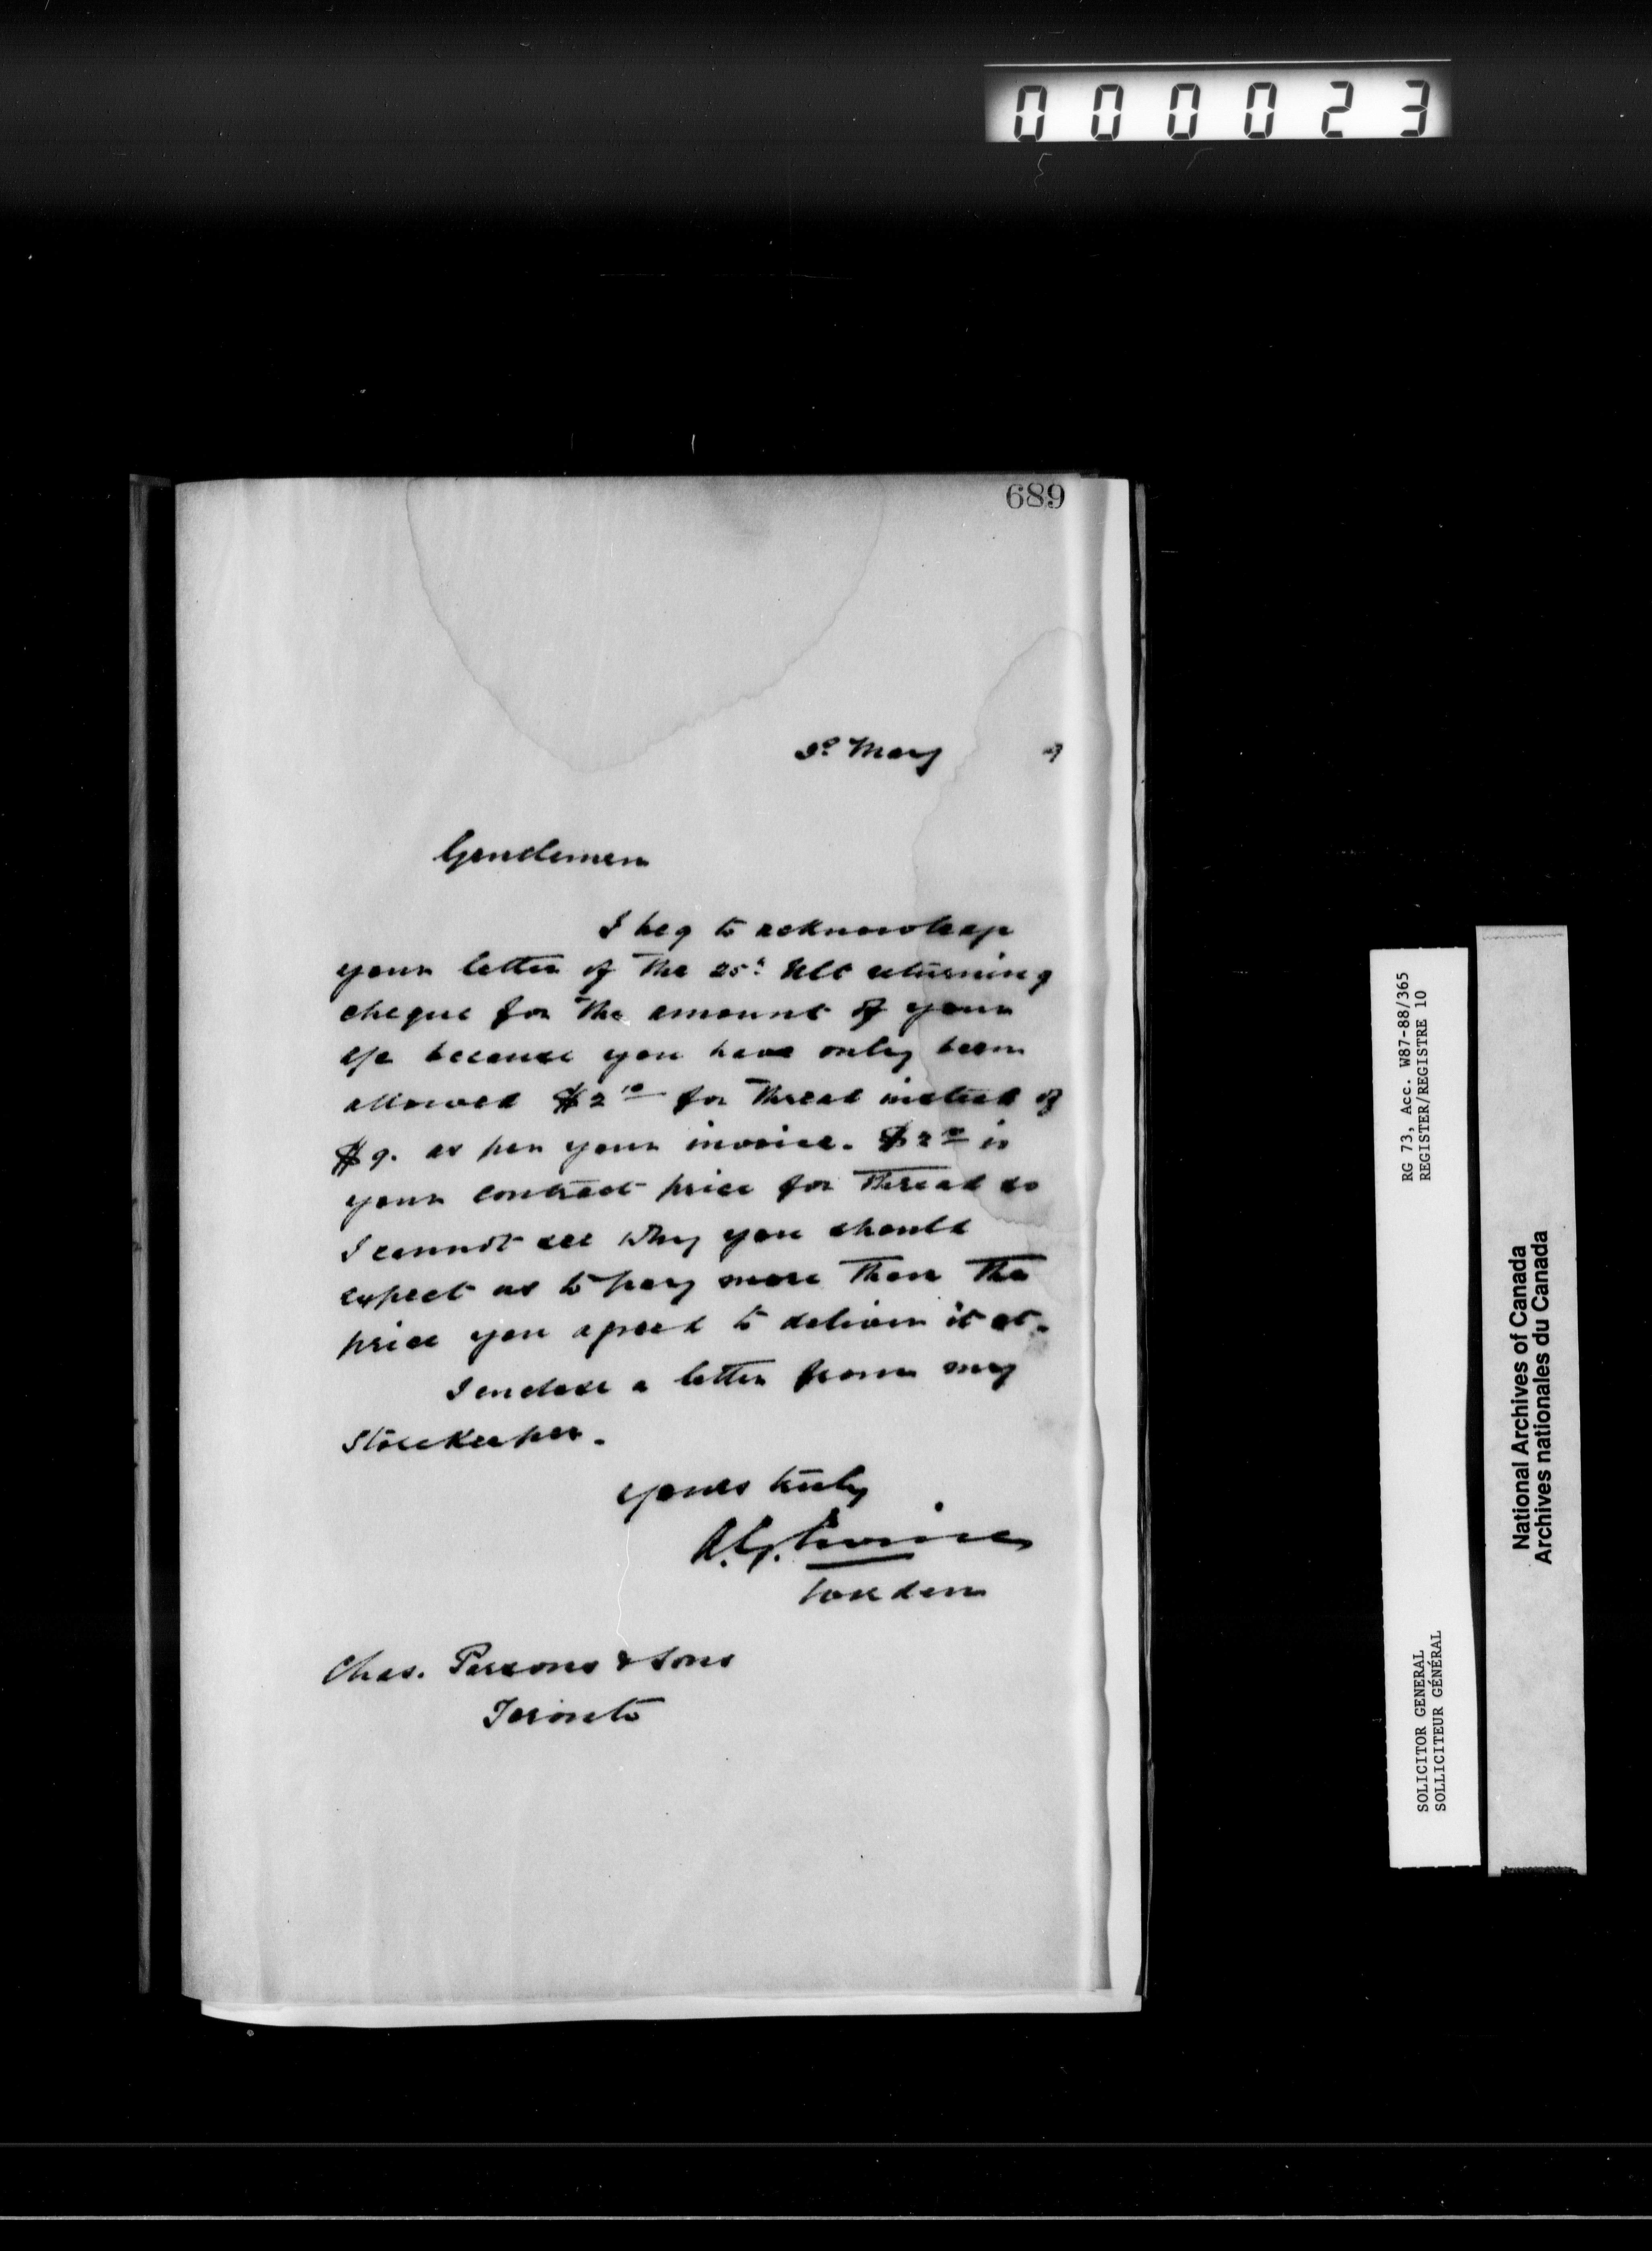 000023
689
3d May 7
Gentlemen
I beg to acknowledge
your letter of the 25th Ult returning
cheque for the amount of your
a/c because you have only been
allowed $2 10 for Thread instead of
$9. as per your invoice. $2 10 is
your contract price for Thread so
I cannot see why you should
expect us to pay more than the
price you agreed to deliver it at.
I enclose a letter from my
Storekeeper.
Yours truly
A.G. Irvine
Warden
Chas. Parsons & Sons
Toronto
RG 73, Acc. W87-88/365
REGISTER/REGISTRE 10
SOLICITOR GENERAL
SOLLICITEUR GÉNÉRAL
National Archives of Canada
Archives nationales du Canada